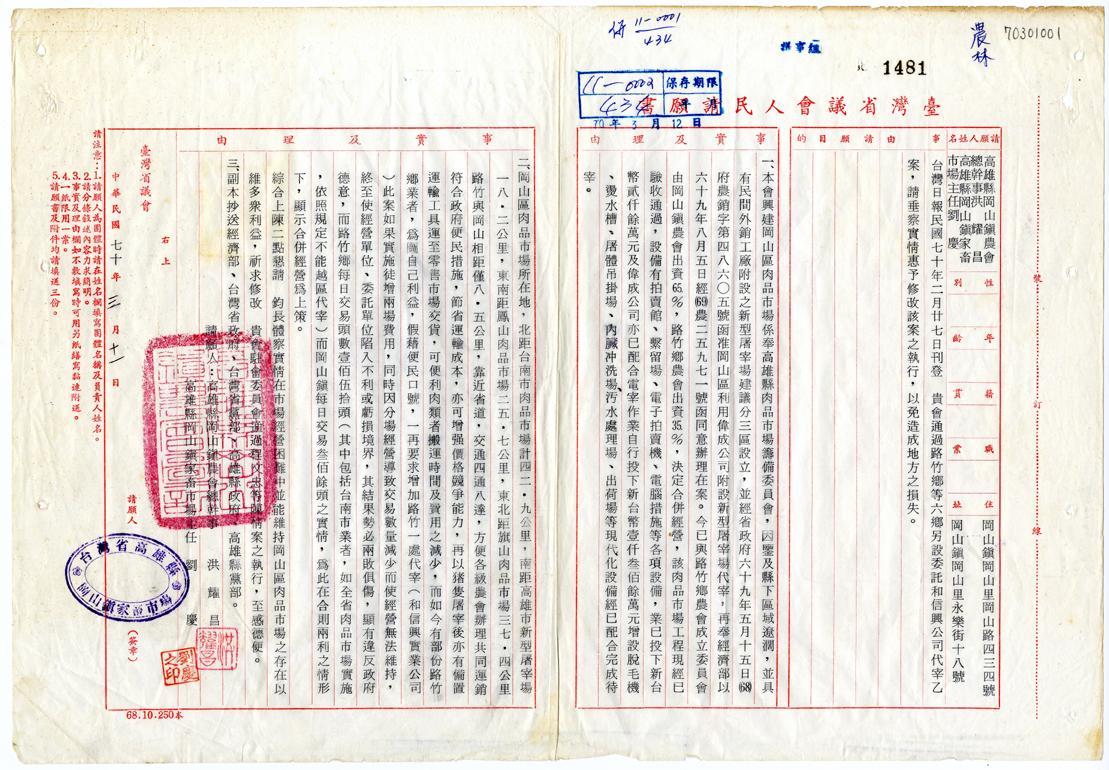 70301001
農林
1481
議事組
併 11-0001
434
11-0002
434
保存期限
年 月
70年3月12日
臺灣省議會人民請願書
請願人姓名
高雄縣岡山鎮農會
總幹事洪耀昌
高雄縣岡山鎮家畜
市場主任劉慶
性別
年齡
籍貫
職業
住址
岡山鎮岡山里岡山路四三四號
岡山鎮岡山里永樂街十八號
事由
台灣日報民國七十年二月廿七日刊登 貴會通過路竹鄉等六鄉另設委託和信興公司代宰乙
案,請垂察實情惠予修改該案之執行,以免造成地方之損失。
請願目的
事實及理由
一、本會興建岡山區肉品市場係奉高雄縣肉品市場籌備委員會,因鑒及縣下區域遼濶,並具
有民間外銷工廠附設之新型屠宰場建議分三區設立,並經省政府六十九年五月十五日(68)
府農銷字第四八六〇五號函准岡山區利用偉成公司附設新型屠宰場代宰,再奉經濟部以
六十九年八月五日經(69)農二五九七一號函同意辦理在案。今已與路竹鄉農會成立委員會
由岡山鎮農會出資65%,路竹鄉農會出資35%,決定合併經營,該肉品市場工程現經已
驗收通過,設備有拍賣館、繫留場、電子拍賣機、電腦措施等各項設備,業已投下新台
幣貳仟餘萬元及偉成公司亦已配合電宰作業自行投下新台幣壹仟叁佰餘萬元增設脫毛機
、燙水槽、屠體吊掛場、內臟冲洗場、污水處理場、出荷場等現代化設備經已配合完成待
宰。
事實及理由
二、岡山區肉品市場所在地,北距台南市肉品市場計四二‧九公里,南距高雄市新型屠宰場
一八‧二公里,東南距鳳山肉品市場二五‧七公里,東北距旗山肉品市場三七‧四公里
路竹與岡山相距僅八‧五公里,靠近省道,交通四通八達,方便各級農會辦理共同運銷
符合政府便民措施,節省運輸成本,亦可增强價格競爭能力,再以猪隻屠宰後亦有備置
運輸工具運至零售市場交貨,可便利肉類者搬運時間及費用之減少,而如今有部份路竹
鄉業者,為圖自己利益,假藉便民口號,一再要求增加路竹一處代宰(和信興實業公司
)此案如果實施徒增兩場費用,同時因分場經營導致交易數量減少而使經營無法維持,
終至使經營單位、委託單位陷入不利或虧損境界,其結果勢必兩敗俱傷,顯有違反政府
德意,而路竹鄉每日交易頭數壹佰伍拾頭(其中包括台南市業者,如全省肉品市場實施
,依照規定不能越區代宰)而岡山鎮每日交易叁佰餘頭之實情,為此在合則兩利之情形
下,顯示合併經營爲上策。
綜合上陳二點懇請 鈞長體察實情在市場經營困難中並能維持岡山區肉品市場之存在以
維多衆利益,祈求修改 貴會駐會委員會通過程文忠等陳情案之執行,至感德便。
三、副本抄送經濟部、台灣省政府、台灣省黨部、高雄縣政府、高雄縣黨部。
請願人:高雄縣岡山鎮農會總幹事 洪耀昌
高雄縣岡山鎮家畜市場主任 劉慶
右上
臺灣省議會
請願人
(簽章)
洪耀昌
劉慶之印
台灣省高雄縣
中華民國七十年三月十一日
請注意:1.請願人為團體時請在姓名欄填寫團體名稱及負責人姓名。
2.請分條敘述內容力求簡明。
3.事實及理由欄如不敷填寫時可用另紙繕寫黏連附送。
4.一紙限用一案。
5.請願書及附件均請填送三份。
裝訂線
68.10.250本